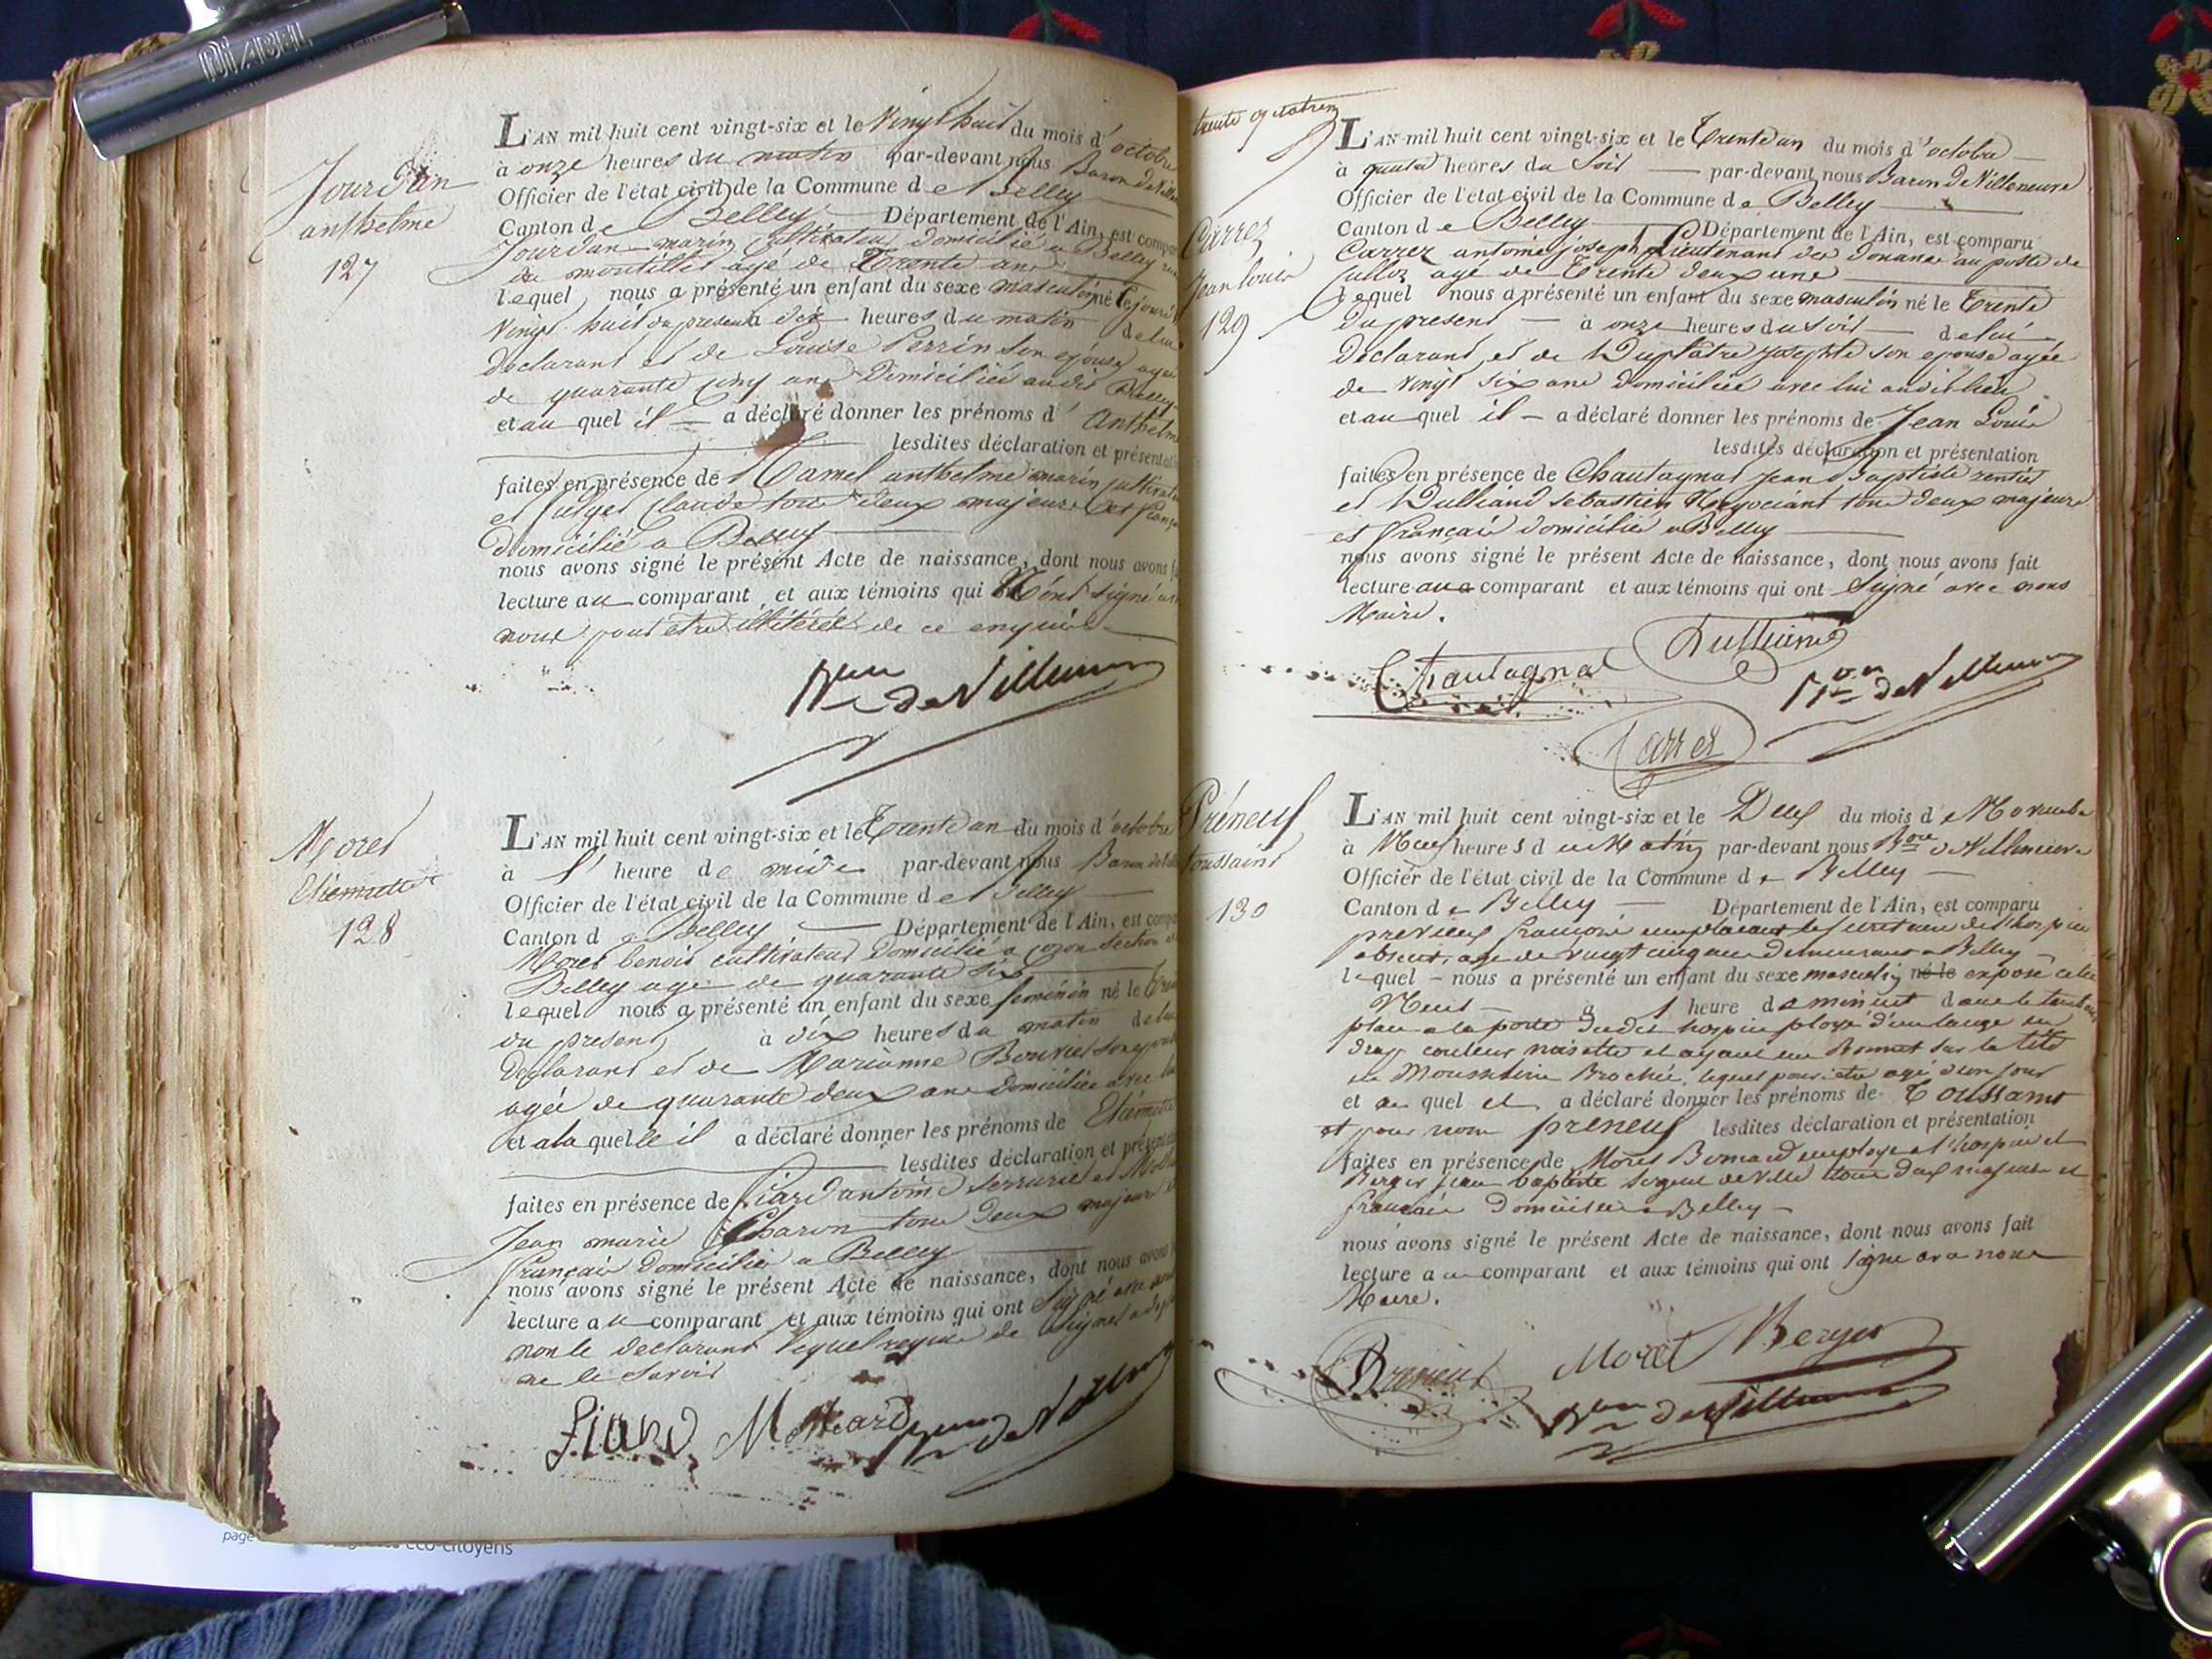 DIABEL
Jourdan
anthelme
127
L'AN mil huit cent vingt-six et le Vingt huit du mois d'octobre
à onze heures du matin par-devant nous Baron de Ville
Officier de l'état civil de la Commune de Belley
Canton de Belley Département de l'Ain, est compa
Jourdan marin Cultivateur domicilié a Belley rue
du moutillet agé de Trente ans
lequel nous a présenté un enfant du sexe masculin né le jour
Vingt huit du present à dix heures du matin de lui
declarant et de Louise Perrin son epouse agée
de quarante cinq ans Domiciliée audit Belley
et au quel il a déclaré donner les prénoms d' Anthelm
lesdites déclaration et présentati
faites en présence de Hamel anthelme marin Cultivate
et Claude tous deux majeurs et françai
Domicilié a Belley
nous avons signé le présent Acte de naissance, dont nous avons f
lecture au comparant et aux témoins qui N'ont signé
nous pour etre illitérés de ce enquis
Bon de Villeneuve
Moret
Etiennette
128
L'AN mil huit cent vingt-six et le Trente un du mois d'octobre
à l' heure de midi par-devant nous Baron de Vill
Officier de l'état civil de la Commune de Belley
Canton de Belley Département de l'Ain, est compa
Moret benoit cultivateur Domicilié a cozon section de
Belley agé de quarante six
lequel nous a présenté un enfant du sexe feminin né le Tren
du present à dix heures du matin de lui
Declarant et de Marianne Bouvier son epouse
agée de quarante deux ans domiciliée avec lui
et a la quelle il a déclaré donner les prénoms de Etiennette
lesdites déclaration et présentati
faites en présence de Fiard antoine serrurier et
Jean marie Charon tous deux majeurs et
français Domicilié a Belley
nous avons signé le présent Acte de naissance, dont nous avons
lecture au comparant et aux témoins qui ont Signé avec nous
non le declarant lequel requis de Signer a dit
ne le savoir
Fiard Bon de Villeneuve
trente octobre
Carrez
Jean Louis
129
L'AN mil huit cent vingt-six et le Trente un du mois d'octobre
à quatre heures du Soir par-devant nous Baron De Villeneuve
Officier de l'état civil de la Commune de Belley
Canton de Belley Département de l'Ain, est comparu
Carrez antoine joseph Lieutenant des Douanes au poste de
Culloz agé de Trente deux ans
lequel nous a présenté un enfant du sexe masculin né le Trente
Du present à onze heures du Soir de lui
Declarant et de Duplatre josephte son epouse agée
de vingt six ans domiciliée avec lui audit lieu
et au quel il a déclaré donner les prénoms de Jean Louis
lesdites déclaration et présentation
faites en présence de Chautagnat Jean Baptiste rentier
et Dulliand Sebastien Negociant tous deux majeurs
et français domicilié a Belley
nous avons signé le présent Acte de naissance, dont nous avons fait
lecture au comparant et aux témoins qui ont Signé avec nous
Maire.
Chautagnat Dulliand Bon de Villeneuve
Carrez
Préneuf
Toussaint
130
L'AN mil huit cent vingt-six et le Deux du mois de Novembre
à Neuf heures du Matin par-devant nous Bon de Villeneuve
Officier de l'état civil de la Commune de Belley
Canton de Belley Département de l'Ain, est comparu
François remplacant le secretaire de l'hospice
absent, age de vingt cinq ans Demeurant a Belley
lequel nous a présenté un enfant du sexe masculin né le exposé cette
Nuit à 1 heure de minuit dans le tambour
placé a la porte dudit hospice ployé d'un lange en
drap couleur noisette et ayant un Bonnet sur la tête
en Mousseline Brochée, lequel peut etre agé d'un jour
et au quel il a déclaré donner les prénoms de Toussaint
et pour nom preneuf lesdites déclaration et présentation
faites en présence de Moret Bernard employé a l'hospice et
Berger Jean baptiste sergent de Ville tous deux majeurs et
français Domiciliés a Belley
nous avons signé le présent Acte de naissance, dont nous avons fait
lecture au comparant et aux témoins qui ont signé avec nous
Maire.
Moret Berger
Bon de Villeneuve
page
éco-citoyens